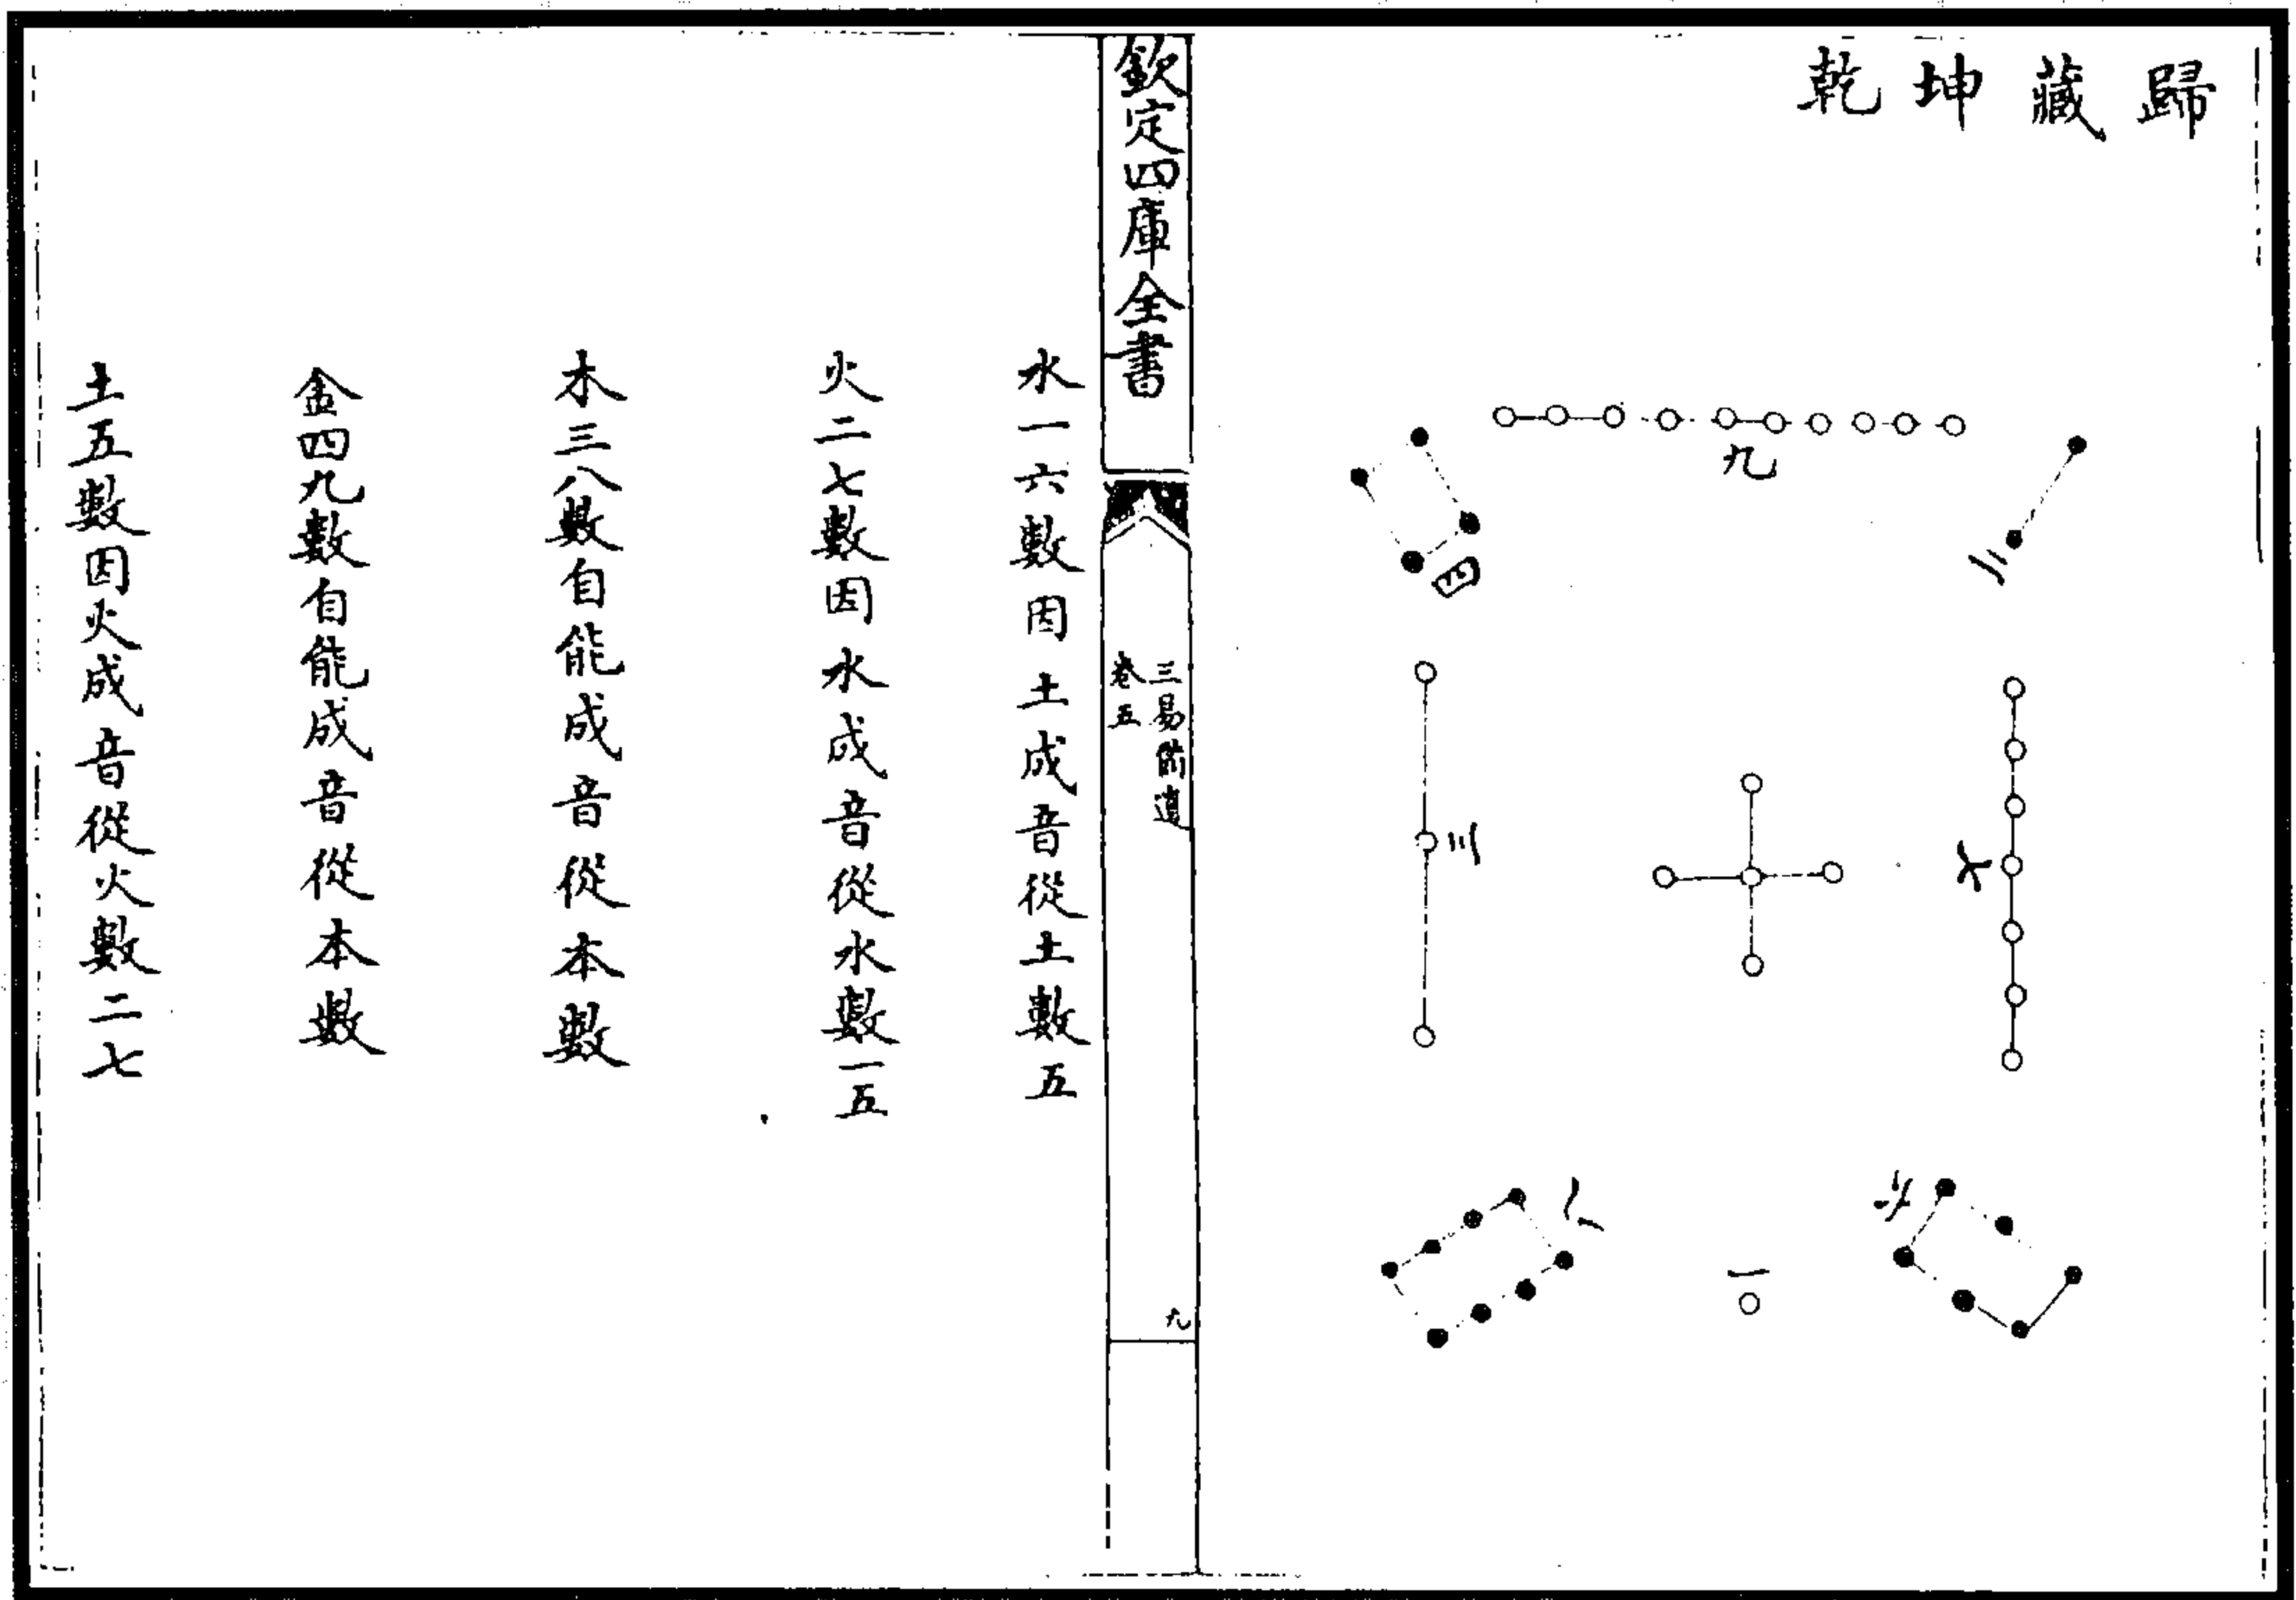 歸藏坤乾
二
九
四
七
三
六
一
八
欽定四庫全書
三易備遺
卷五
九
水一六數因土成音從土數五
火二七數因水成音從水數一五
木三八數自能成音從本數
金四九數自能成音從本數
土五數因火成音從火數二七